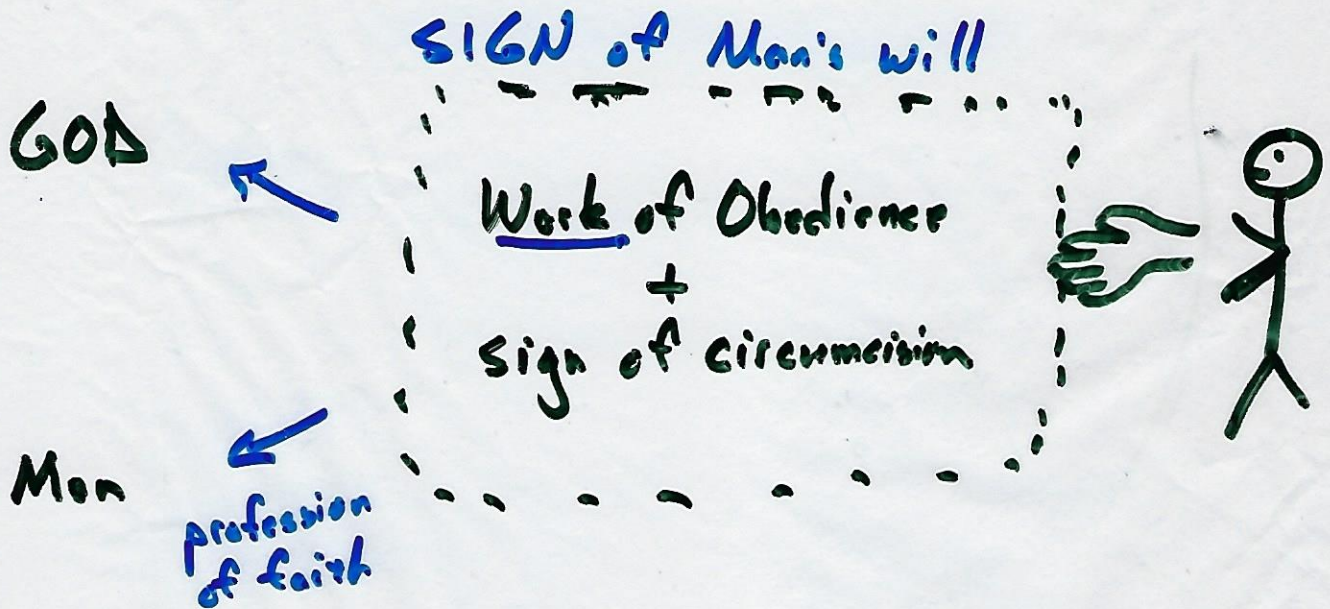 SIGN of Man's will
GOD
Work of Obedience
+
sign of circumcision
Man
profession
of faith